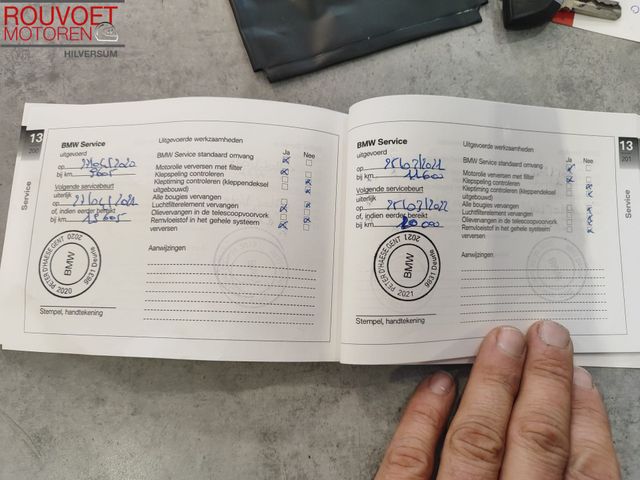 ROUVOET
MOTOREN
HILVERSUM
13
Service
BMW Service
uitgevoerd
op 22/05/2020
bij km 5605
Volgende servicebeurt
uiterlijk
op 22/05/2021
of, indien eerder bereikt
bij km 15605
PETER D'HAESE GENT 2020
9831 Deurle
BMW
PETER 2020
Stempel, handtekening
Uitgevoerde werkzaamheden
Ja Nee
BMW Service standaard omvang
Motorolie verversen met filter
Klepspeling controleren
Kleptiming controleren (kleppendeksel
uitgebouwd)
Alle bougies vervangen
Luchtfilterelement vervangen
Olievervangen in de telescoopvoorvork
Remvloeistof in het gehele systeem
verversen
Aanwijzingen
BMW Service
uitgevoerd
op 25/03/2021
bij km 11600
Volgende servicebeurt
uiterlijk
op 25/03/2022
of, indien eerder bereikt
bij km 20000
PETER D'HAESE GENT 2021
9831 Deurle
BMW
2021
Stempel, handtekening
Uitgevoerde werkzaamheden
Ja Nee
BMW Service standaard omvang
Motorolie verversen met filter
Klepspeling controleren
Kleptiming controleren (kleppendeksel
uitgebouwd)
Alle bougies vervangen
Luchtfilterelement vervangen
Olievervangen in de telescoopvoorvork
Remvloeistof in het gehele systeem
verversen
Aanwijzingen
13
201
Service